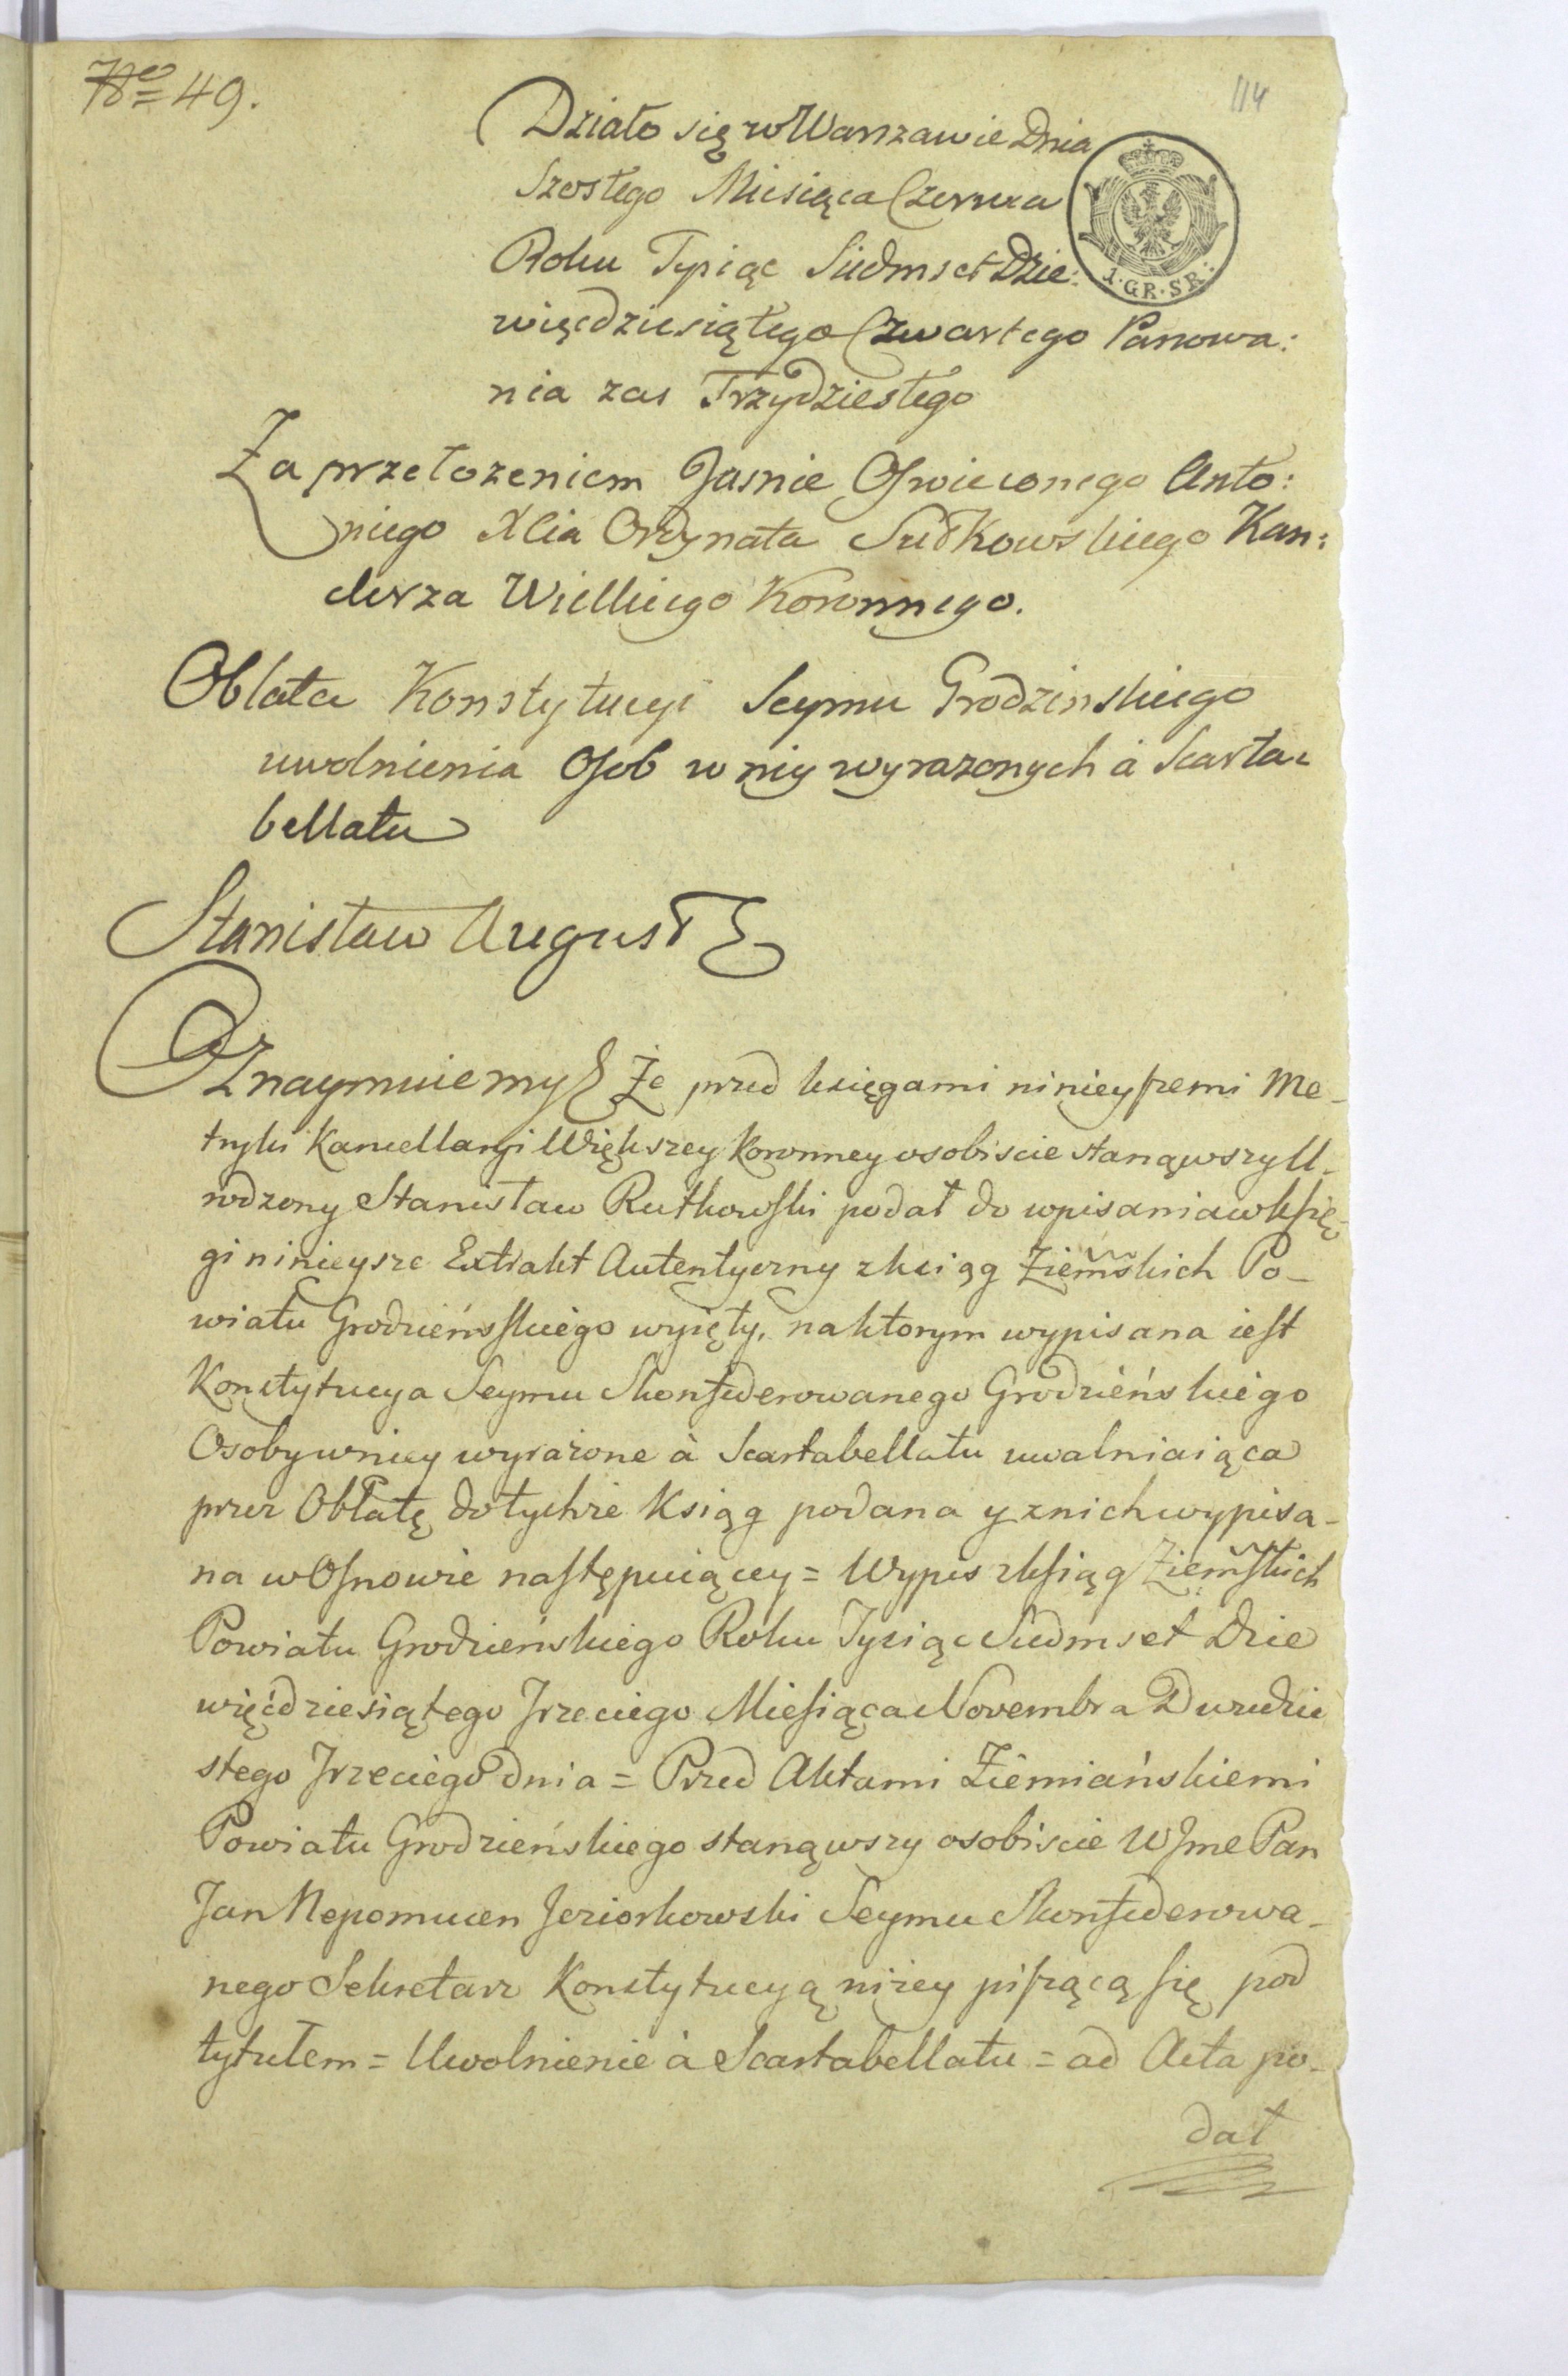 No 49.
114
Działo się w Warszawie Dnia
Szostego Miesiąca Czerwca
Roku Tysiąc Siedmset Dzie:
więcdziesiątego Czwartego Panowa:
nia zas Trzydziestego
1·GR·SR·
Za przełozeniem Jasnie Oswieconego Anto:
niego Xcia Ordynata Sułkowskiego Kan:
clerza Wielkiego Koronnego.
Oblata Konstytucyi Seymu Grodzinskiego
uwolnienia Osob w niey wyrazonych à Scarta=
bellatu
Stanisław August
Oznaymuiemy Że przed księgami ninieyszemi Me-
tryki Kancellaryi Większey Koronney osobiscie stanąwszy U-
rodzony Stanisław Rutkowski podał do wpisania w księ-
gi ninieysze Extrakt Autentyczny z ksiąg Ziemskich Po-
wiatu Grodzieńskiego wyięty, na ktorym wypisana iest
Konstytucya Seymu Skonfederowanego Grodzieńskiego
Osoby w niey wyrażone à Scartabellatu uwalniaiąca
przez Obłatę do tychże Ksiąg podana y z nich wypisa-
na w Osnowie następuiącey = Wypis z Ksiąg Ziemskich
Powiatu Grodzieńskiego Roku Tysiąc Siedmset Dzie
więćdziesiątego Trzeciego Miesiąca Novembra Dwudzie
stego Trzeciego dnia = Przed Aktami Ziemiańskiemi
Powiatu Grodzieńskiego stanąwszy osobiscie WJme Pan
Jan Nepomucen Jeziorkowski Seymu Skonfederowa-
nego Sekretarz Konstytucyą niżey piszącą się pod
tytułem = Uwolnienie à Scartabellatu = ad Acta po-
dał